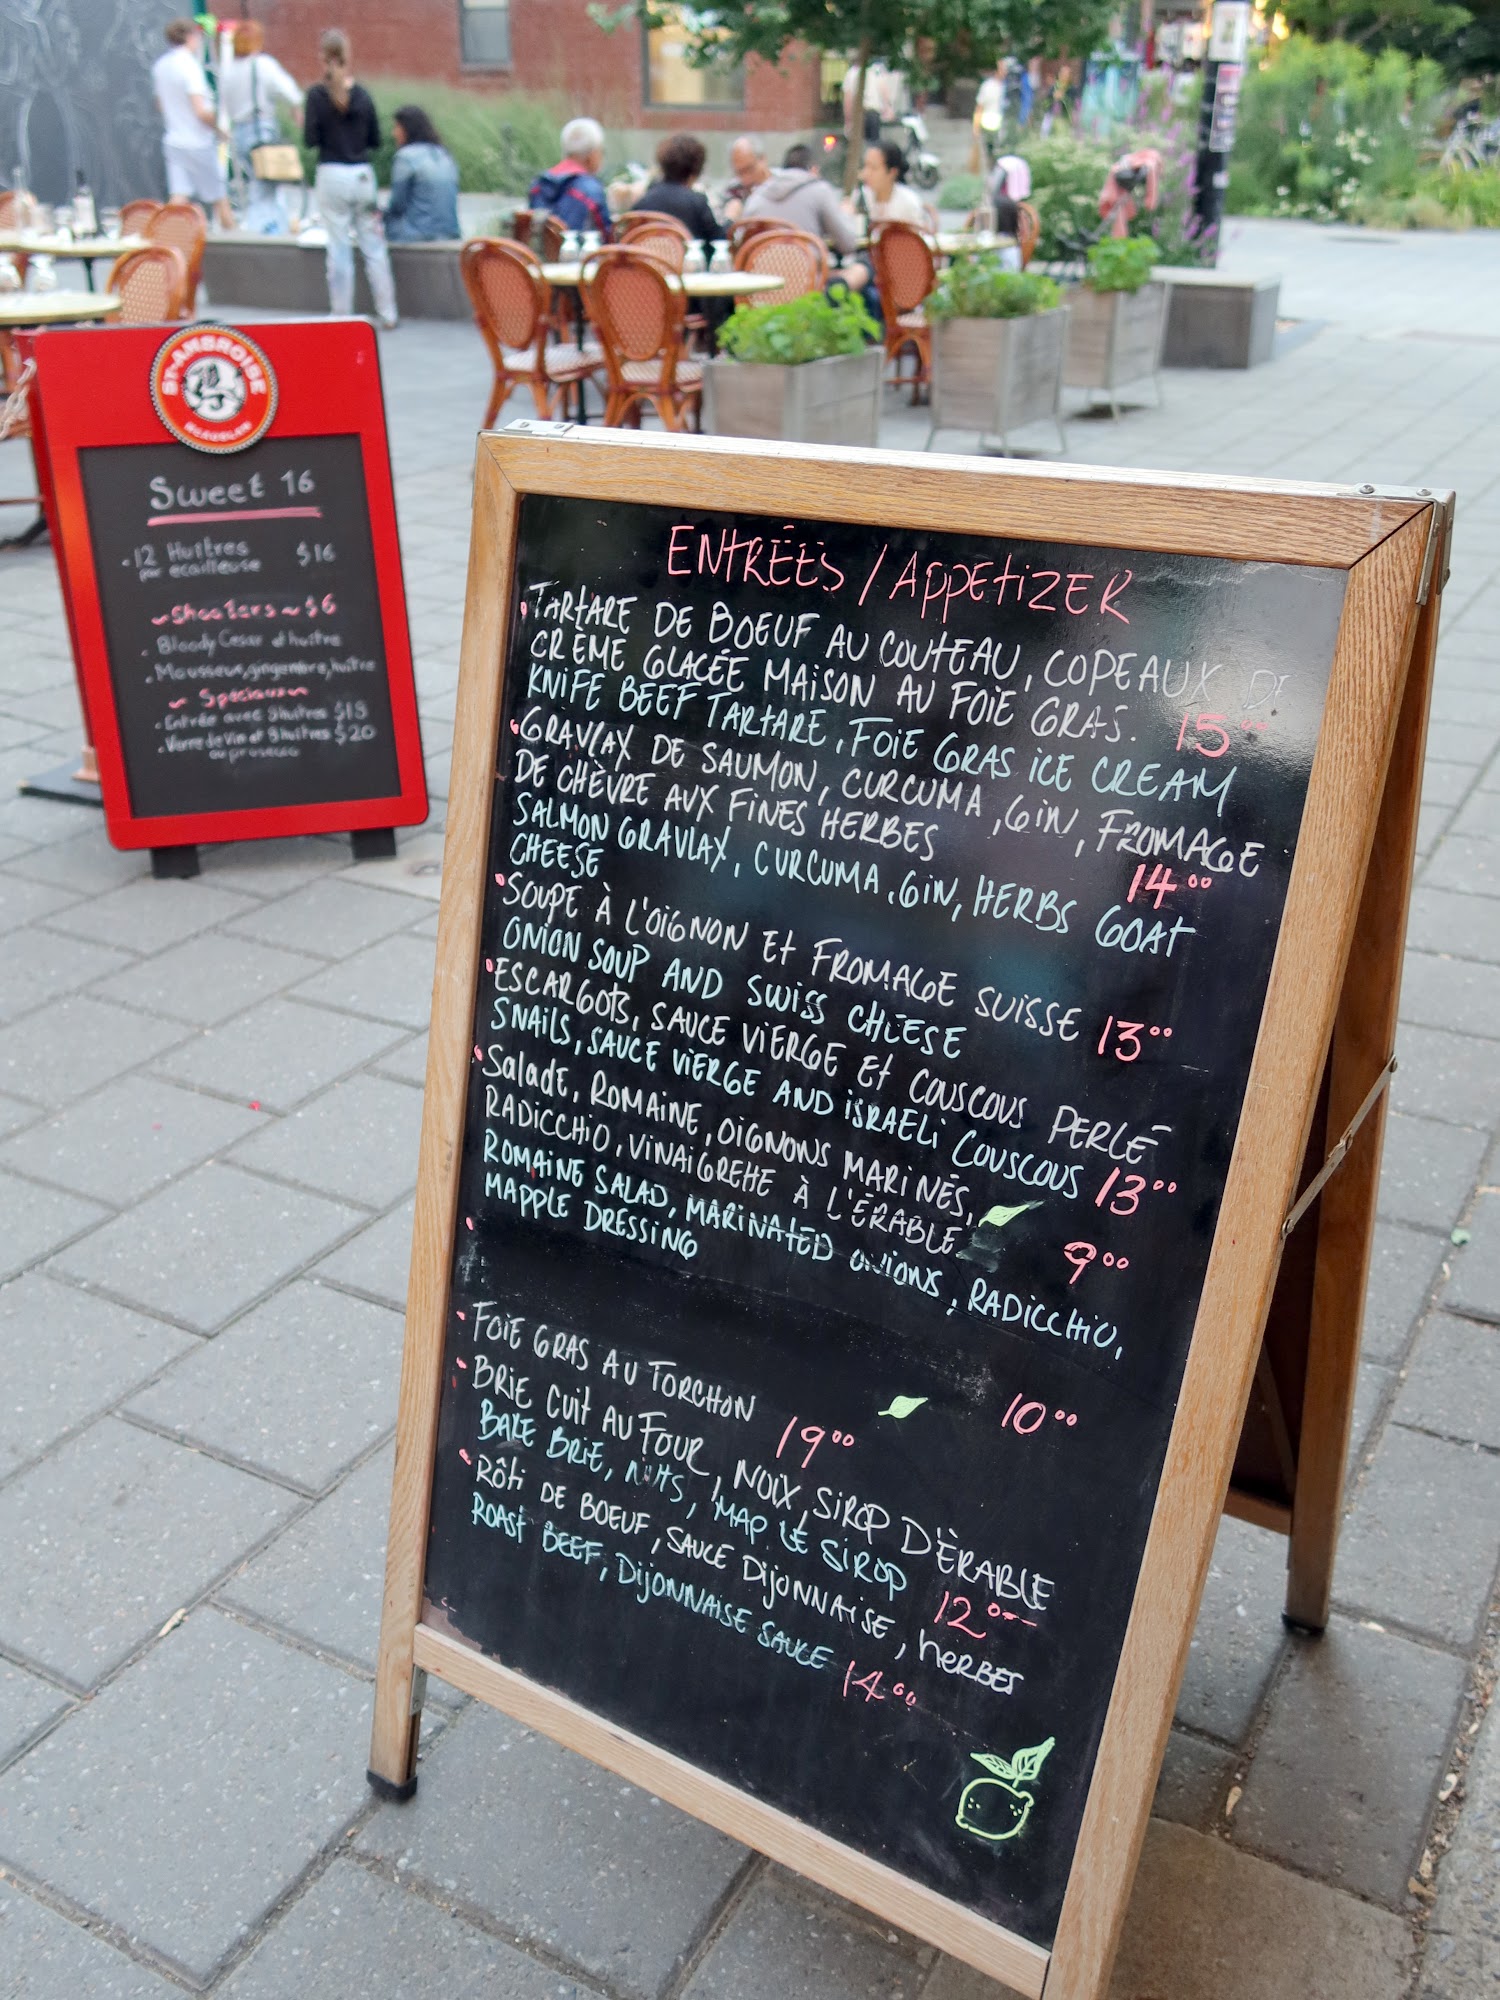 ST-AMBROISE
McAUSLAN
Sweet 16
12 Huîtres $16
par écailleuse
Shooters $6
Bloody Cesar et huître
Mousseux, gingembre, huître
Spéciaux
Entrée avec 3 huîtres $18
Verre de Vin et 8 huîtres $20
ou prosecco
ENTRÉES / APPETIZER
TARTARE DE BOEUF AU COUTEAU, COPEAUX DE
CRÈME GLACÉE MAISON AU FOIE GRAS. 15⁰⁰
KNIFE BEEF TARTARE, FOIE GRAS ICE CREAM
GRAVLAX DE SAUMON, CURCUMA, GIN, FROMAGE
DE CHÈVRE AUX FINES HERBES 14⁰⁰
SALMON GRAVLAX, CURCUMA, GIN, HERBS GOAT
CHEESE
SOUPE À L'OIGNON ET FROMAGE SUISSE 13⁰⁰
ONION SOUP AND SWISS CHEESE
ESCARGOTS, SAUCE VIERGE ET COUSCOUS PERLÉ
SNAILS, SAUCE VIERGE AND ISRAELI COUSCOUS 13⁰⁰
Salade, ROMAINE, OIGNONS MARINÉS,
RADICCHIO, VINAIGRETTE À L'ÉRABLE 9⁰⁰
ROMAINE SALAD, MARINATED ONIONS, RADICCHIO,
MAPPLE DRESSING
10⁰⁰
FOIE GRAS AU TORCHON 19⁰⁰
BRIE CUIT AU FOUR, NOIX, SIROP D'ÉRABLE
BAKE BRIE, NUTS, MAP LE SIROP 12⁰⁰
RÔTI DE BOEUF, SAUCE DIJONNAISE, HERBES
ROAST BEEF, DIJONNAISE SAUCE 14⁰⁰